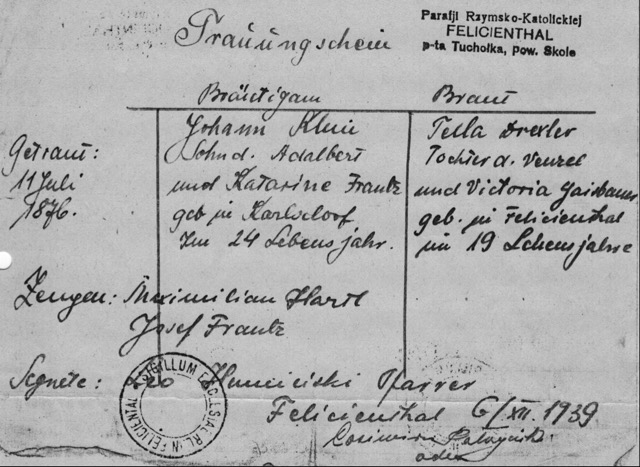 Parafji Rzymsko-Katolickiej
FELICIENTHAL
p-ta Tuchołka, pow. Skole
Trauungschein
Bräutigam
Braut
Getraut:
11 Juli
1876.
Johann Klein
Sohn d. Adalbert
und Katarine Frantz
geb in Karlsdorf
Im 24 Lebensjahr.
Tecla Drexler
Tochter d. Venzel
und Victoria
geb. in Felicienthal
im 19 Lebensjahre
Zeugen: Maximilian Hartl
Josef Frantz
Segnete: Leo Pfarrer
SIGILLUM ECCLESIAE R.L. IN FELICIENTHAL
Felicienthal 6/XII. 1939